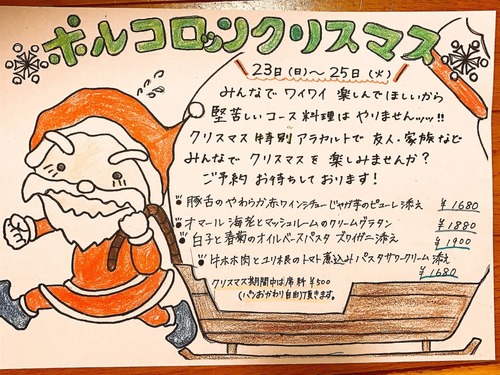 ポルコロッソクリスマス
23日(日)～25日(火)
みんなで ワイワイ 楽しんでほしいから
堅苦しいコース料理は やりませんッッ!!
クリスマス特別アラカルトで 友人・家族など
みんなで クリスマスを 楽しみませんか?
ご予約 お待ちしております!
豚舌のやわらか赤ワインシチューじゃが芋のピューレ添え ¥1680
オマール海老とマッシュルームのクリームグラタン ¥1880
白子と春菊のオイルベースパスタ ズワイガニ添え ¥1900
牛ホホ肉とユリ根のトマト煮込みパスタサワークリーム添え ¥1680
クリスマス期間中は席料¥500
(パンおかわり自由)頂きます。